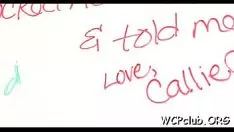 & told me
Love,
Callie
WCPclub.ORG